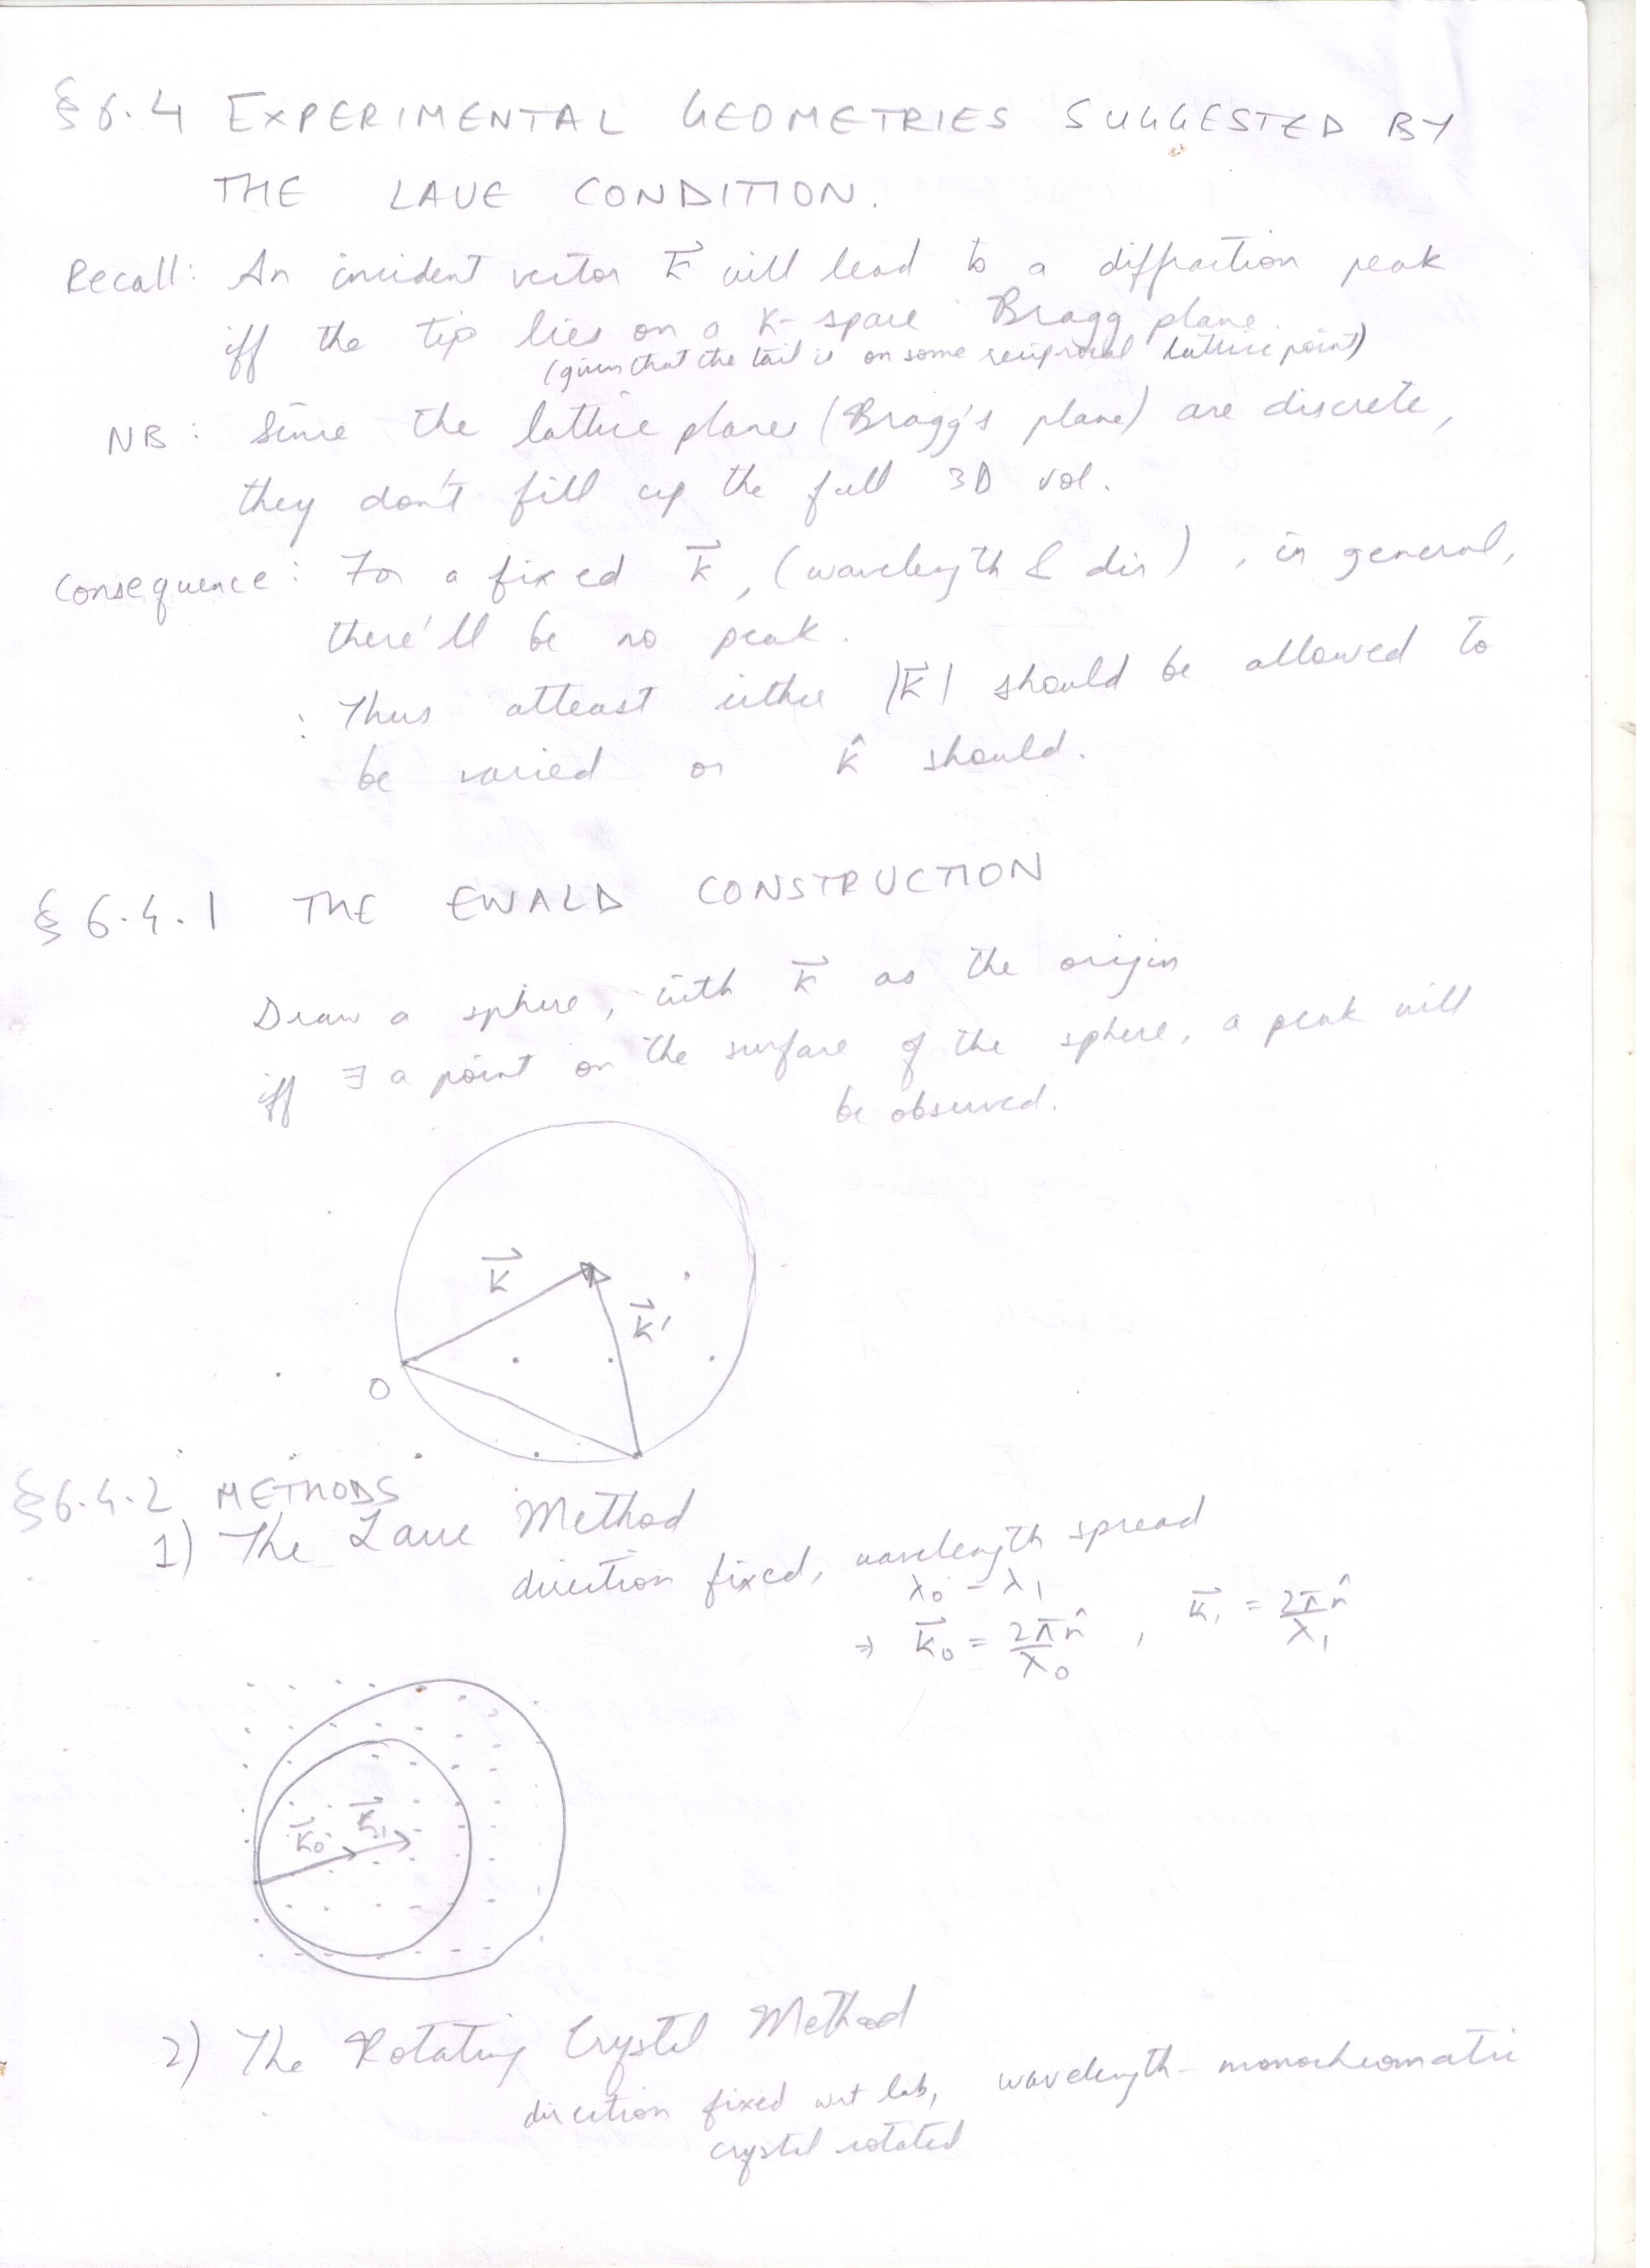 § 6.4 EXPERIMENTAL GEOMETRIES SUGGESTED BY
THE LAUE CONDITION.
Recall: An incident vector k⃗ will lead to a diffraction peak
iff the tip lies on a K-space Bragg plane.
(given that the tail is on some reciprocal lattice point)
NB: Since the lattice planes (Bragg's plane) are discrete,
they don't fill up the full 3D vol.
Consequence: For a fixed k⃗, (wavelength & dir), in general,
there'll be no peak.
: Thus atleast either |k⃗| should be allowed to
be varied or k̂ should.
§ 6.4.1 THE EWALD CONSTRUCTION
Draw a sphere, with k⃗ as the origin
iff ∃ a point on the surface of the sphere, a peak will
be observed.
k⃗
k⃗'
O
§6.4.2 METHODS
1) The Laue Method
direction fixed, wavelength spread
λ₀ - λ₁
⇒ k⃗₀ = 2π n̂ / λ₀ , k⃗₁ = 2π n̂ / λ₁
k⃗₀ k⃗₁
2) The Rotating Crystal Method
direction fixed wrt lab, wavelength - monochromatic
crystal rotated